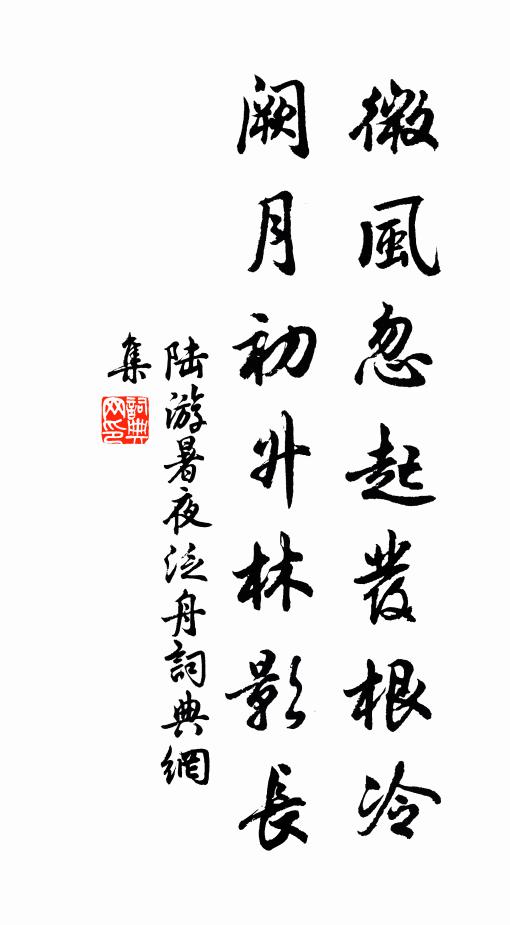 微風忽起發根冷
闕月初升林影長
陆游暑夜泛舟詞典網
集
詞典
网印